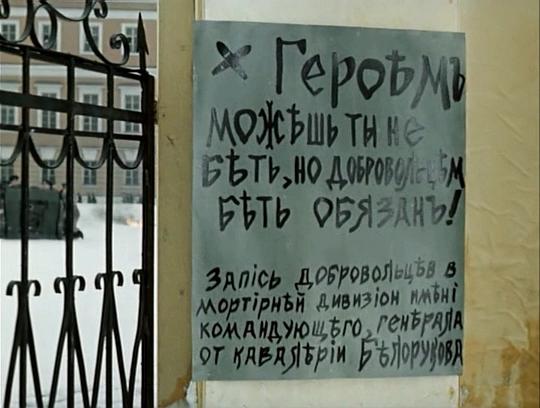 Героѣмъ
можѣшь ты не
бѣть, но добровольцѣм
бѣть обязанъ!
Запісь добровольцѣв в
мортірнѣй дивизіон имѣні
командующѣго, генѣрала
от кавалѣріи Бѣлорукова